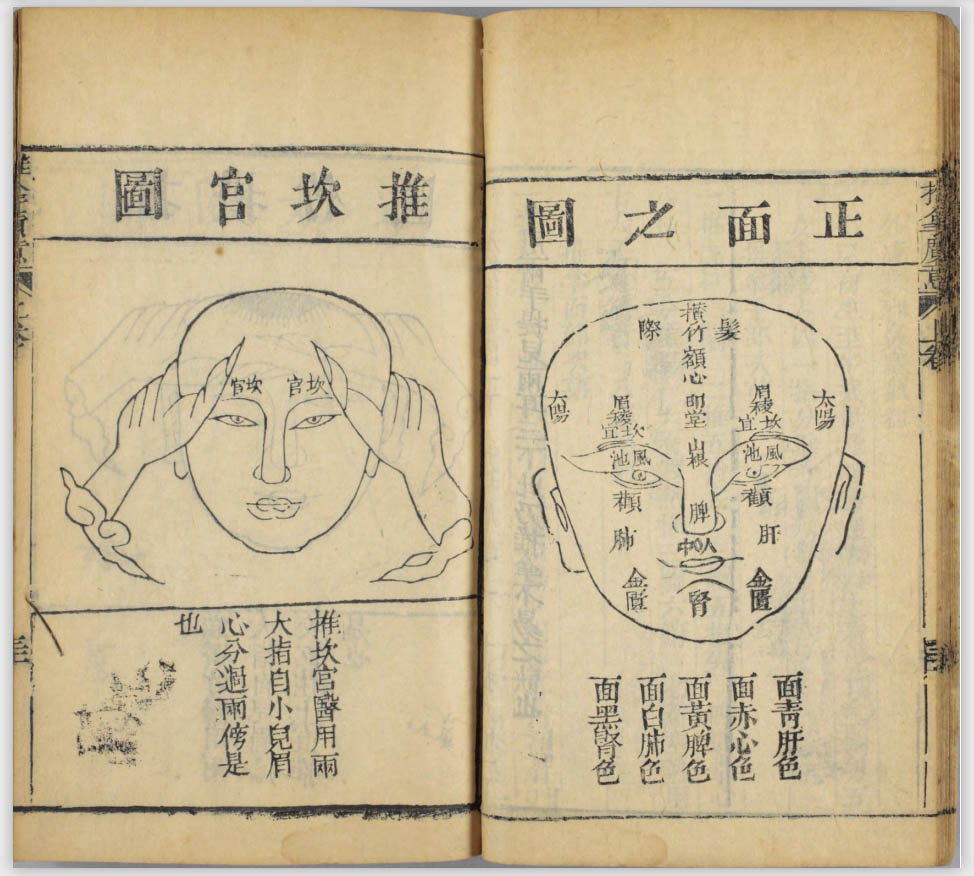 正面之圖
髮際
攢竹額心印堂山根
太陽
太陽
眉稜
眉稜
坎宮
坎宮
風池
風池
顴
顴
脾
肝
肺
人中
金匱
金匱
腎
面青肝色
面赤心色
面黃脾色
面白肺色
面黑腎色
推坎官圖
坎官
坎官
推坎宮醫用兩
大指自小兒眉
心分過兩傍是
也